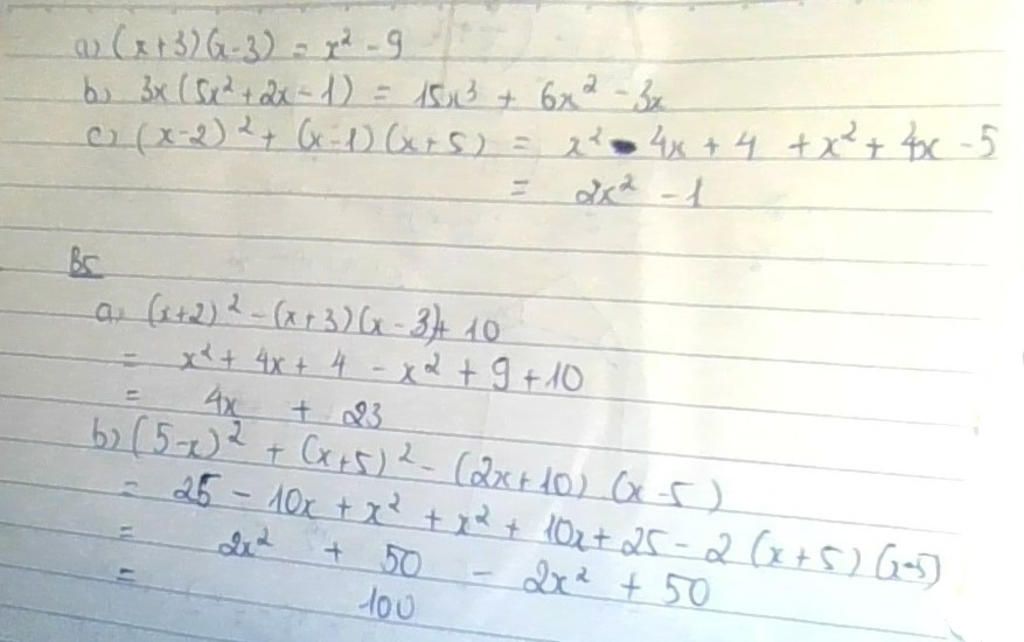 a) (x+3)(x-3) = x² - 9
b) 3x(5x²+2x-1) = 15x³ + 6x² - 3x
c) (x-2)² + (x-1)(x+5) = x² - 4x + 4 + x² + 4x - 5
= 2x² - 1
B5
a) (x+2)² - (x+3)(x-3)+ 10
= x² + 4x + 4 - x² + 9 + 10
= 4x + 23
b) (5-x)² + (x+5)² - (2x+10) (x-5)
= 25 - 10x + x² + x² + 10x + 25 - 2 (x+5) (x-5)
= 2x² + 50 - 2x² + 50
= 100